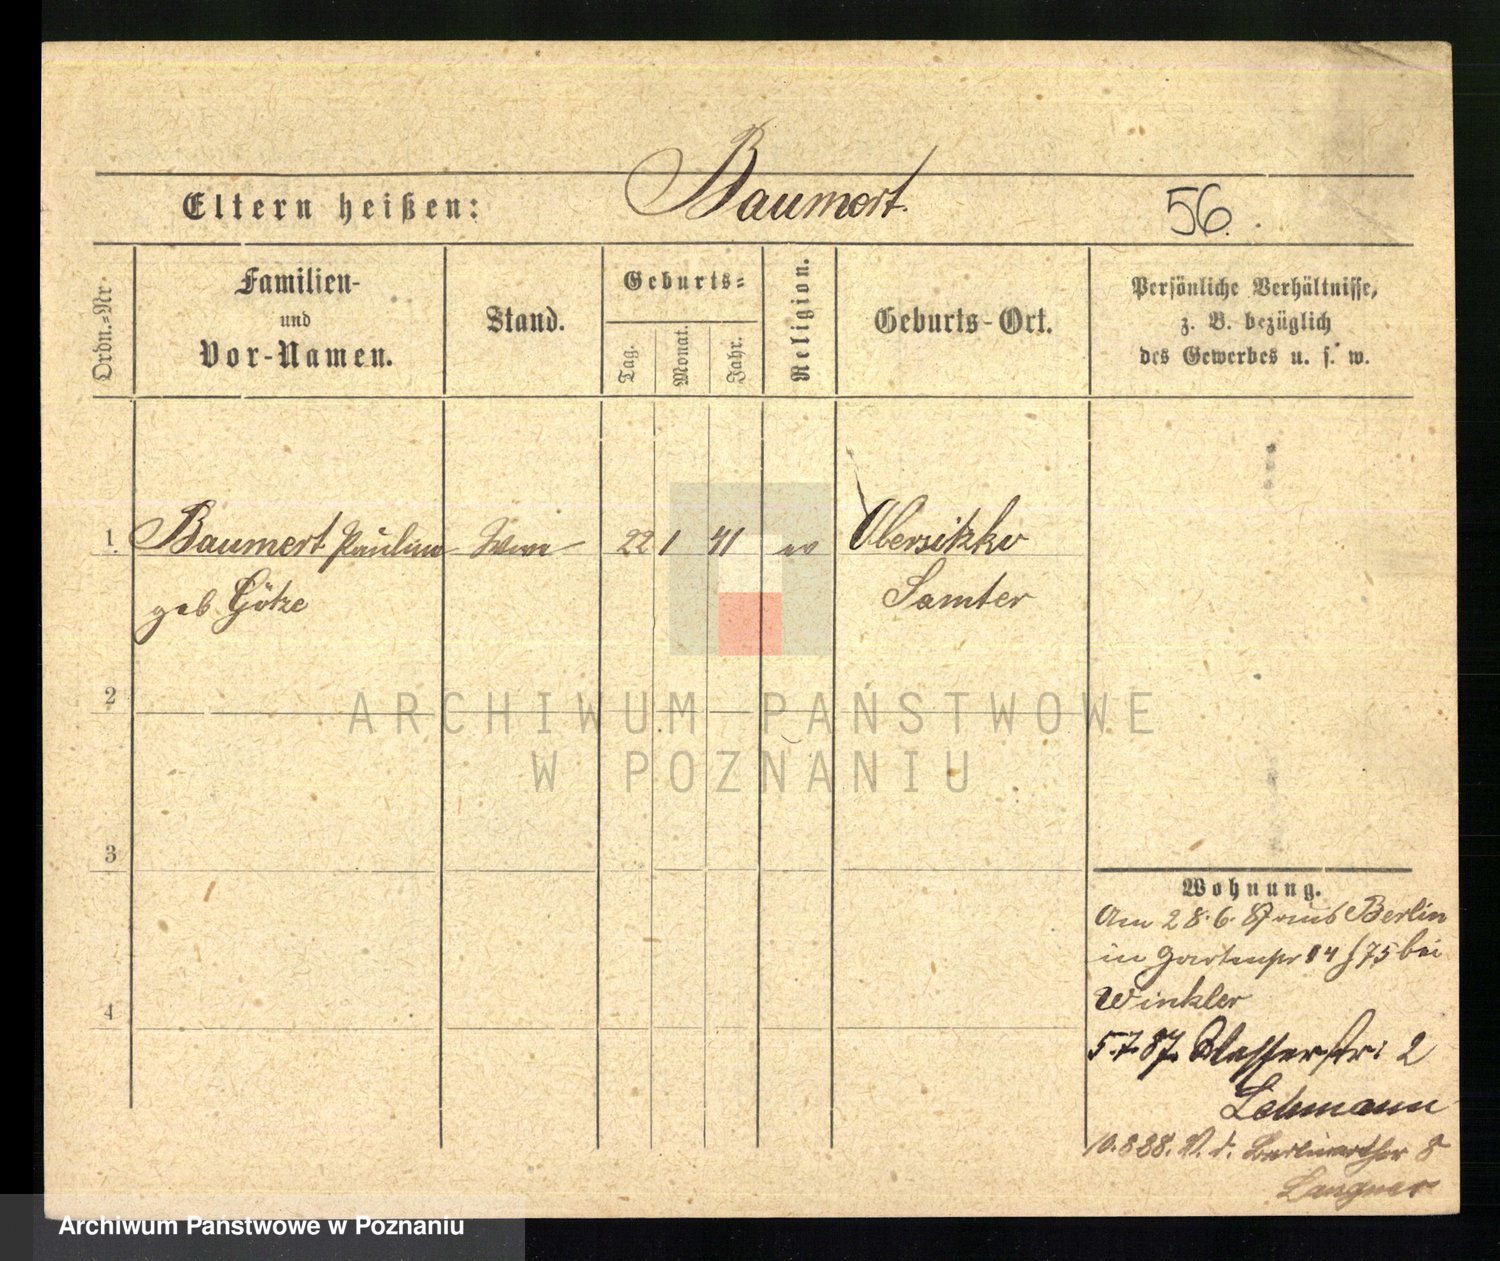 Eltern heißen: Baumert. 56.
Ordn.=Nr.
Familien-
und
Vor-Namen.
Stand.
Geburts=
Tag.
Monat.
Jahr.
Religion.
Geburts-Ort.
Persönliche Verhältnisse,
z. B. bezüglich
des Gewerbes u. s. w.
1. Baumert Pauline Wwe 22 1 41 ev Obersitzko
geb Götze Samter
2
ARCHIWUM PAŃSTWOWE
W POZNANIU
3
Wohnung.
Am 28.6.87 aus Berlin
in Gartenstr 14 75 bei
Winkler
4
5.7.87. str: 2
Lehmann
10.8 88. V. d. Berlinerthor 8
Langner
Archiwum Państwowe w Poznaniu